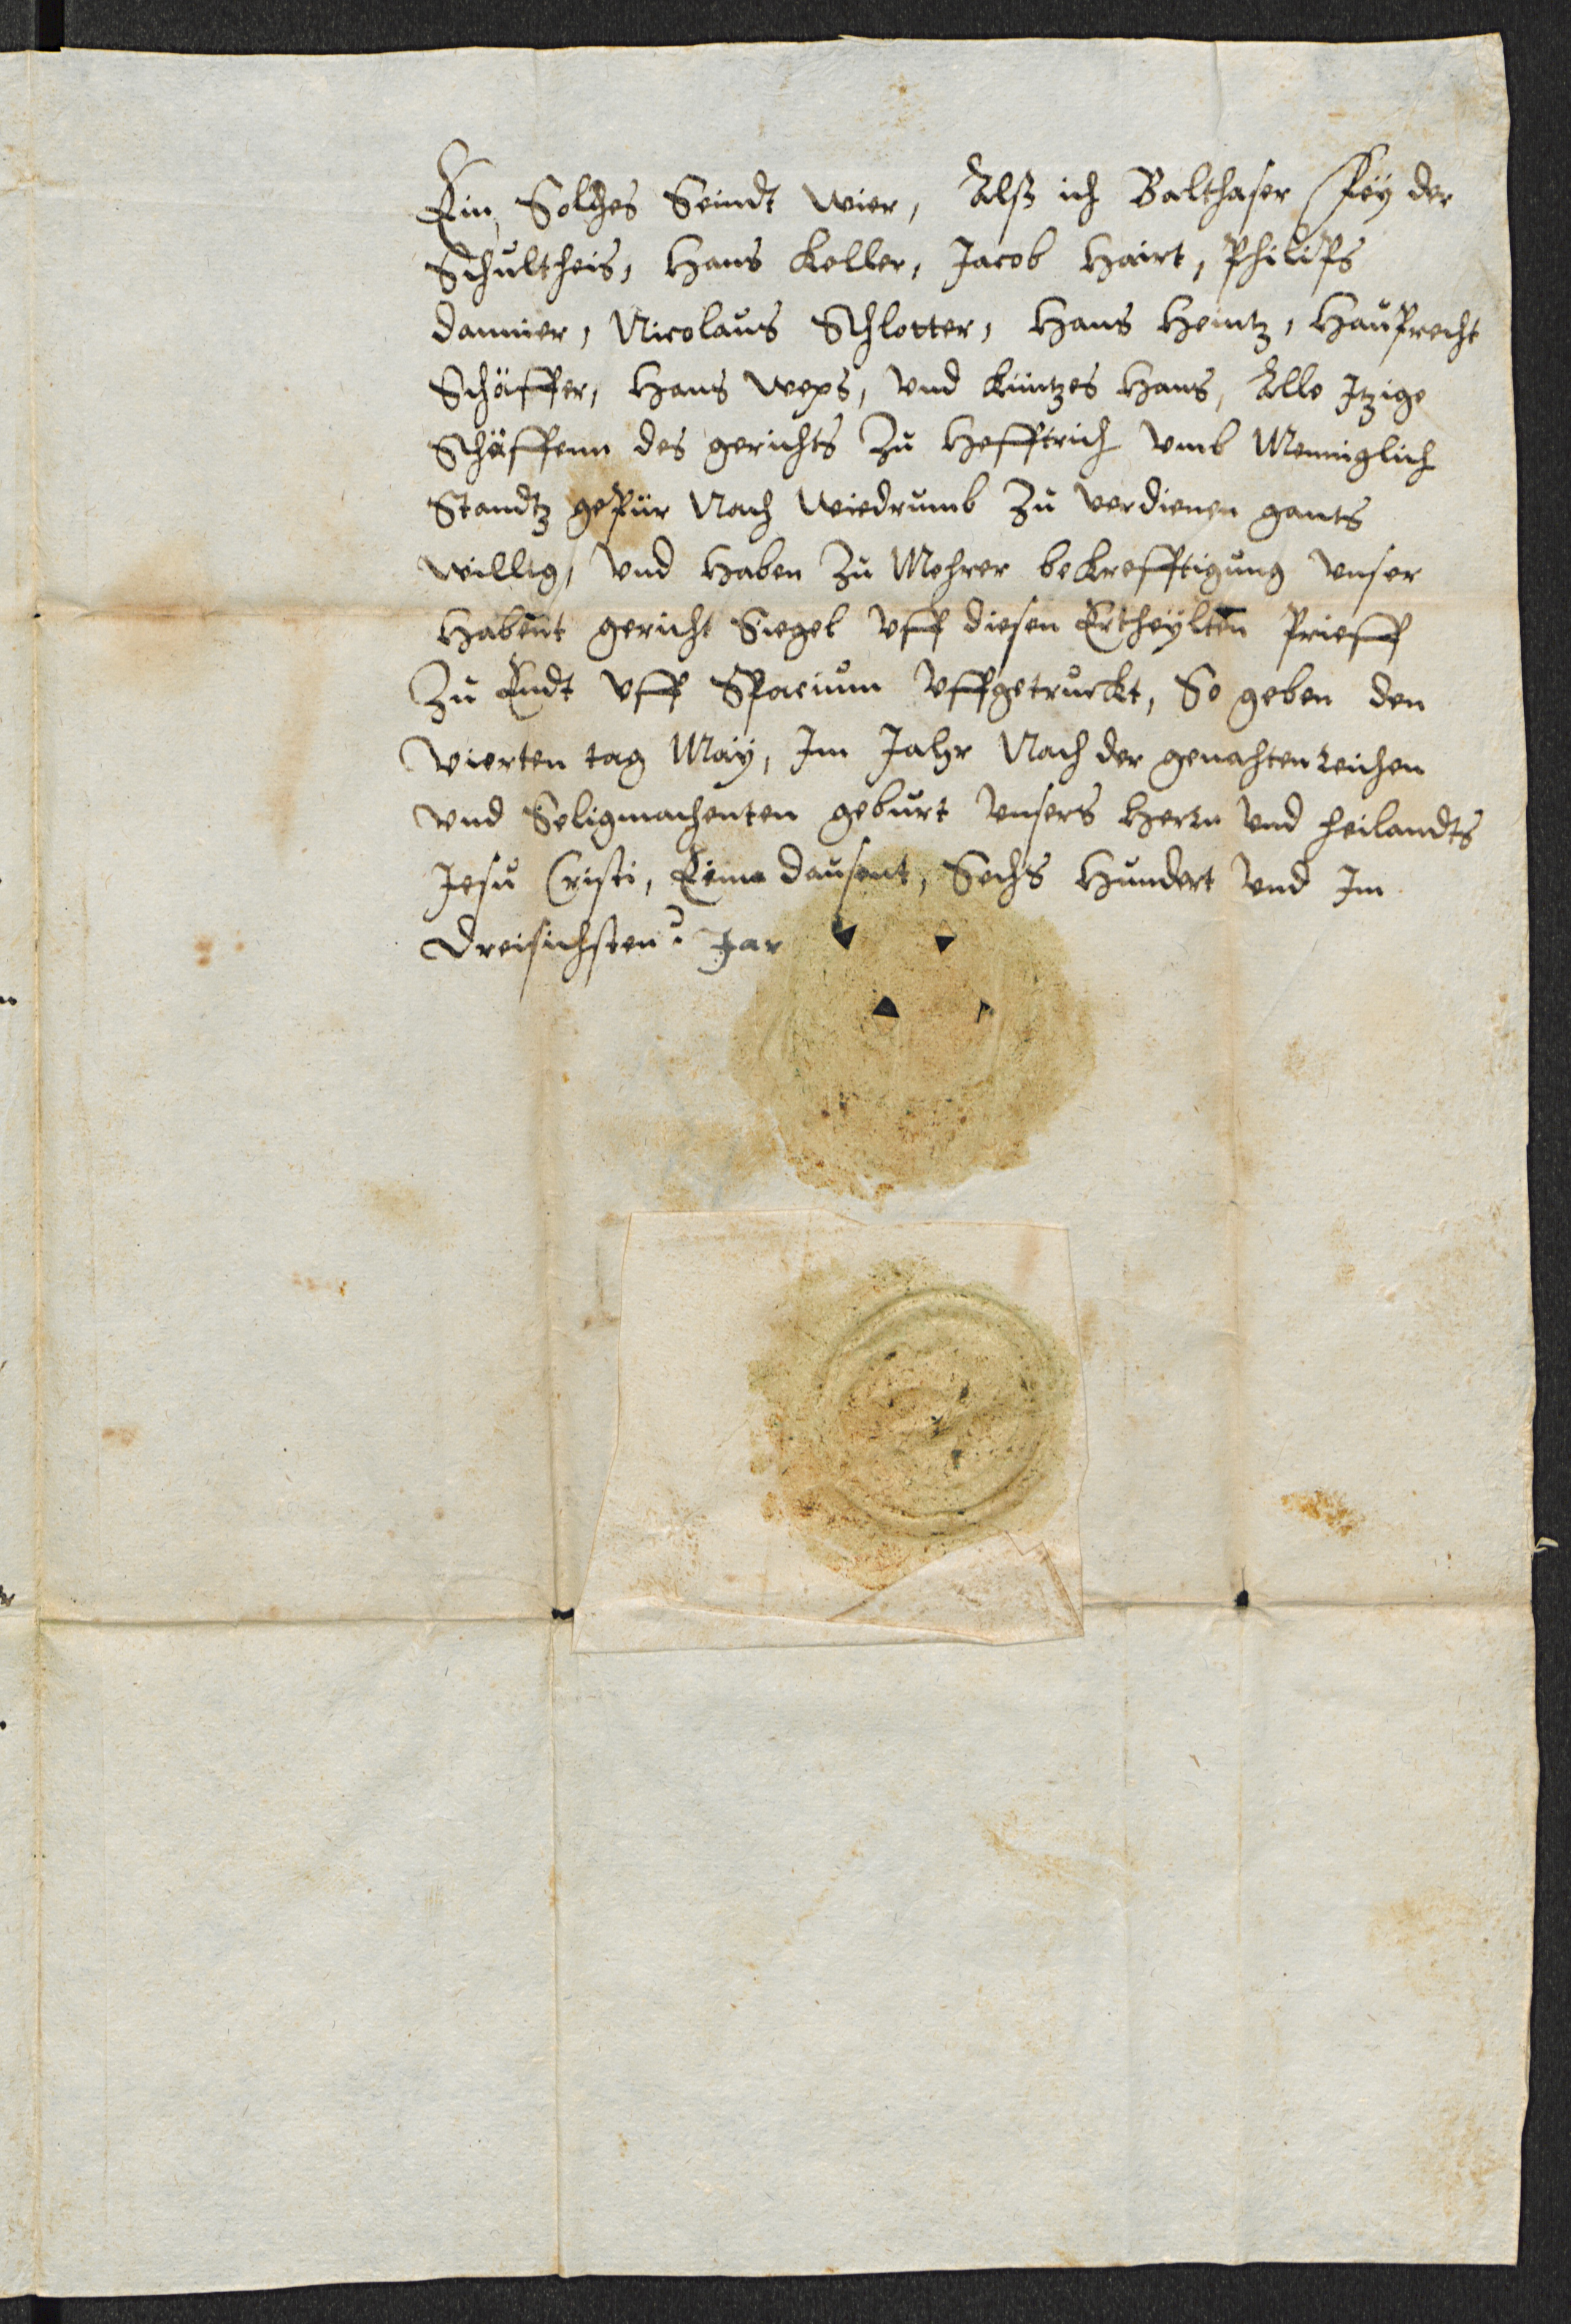 Ein Solches Seindt wier, Alß ich Balthaser Feÿ der
Schultheis, Hans Keller, Jacob Hairt, Philips
dannier, Nicolaus Schlotter, Hans Heintz, Hauprecht
Schäffer, Hans weps, vnd Küntzes Hans, Alle Itzige
Schäffenn des gerichts Zu Hefftrich vmb Menniglich
Standtz gepür Nach wiedrumb Zu verdienen gants
willig, vnd Haben Zu Mehrer beKrefftigung vnser
Habent gericht Siegel vff diesen Ertheÿlten Prieff
Zu Endt vff Spacium vffgetruckt, So geben den
vierten tag Maÿ, Im Jahr Nach der genahtenreichen
vnd Seligmachenten geburt vnsers Herrn vnd heilandts
Jesu Cristi, Eima dausent, Sechs Hundert vnd Im
Dreisichsten Jar